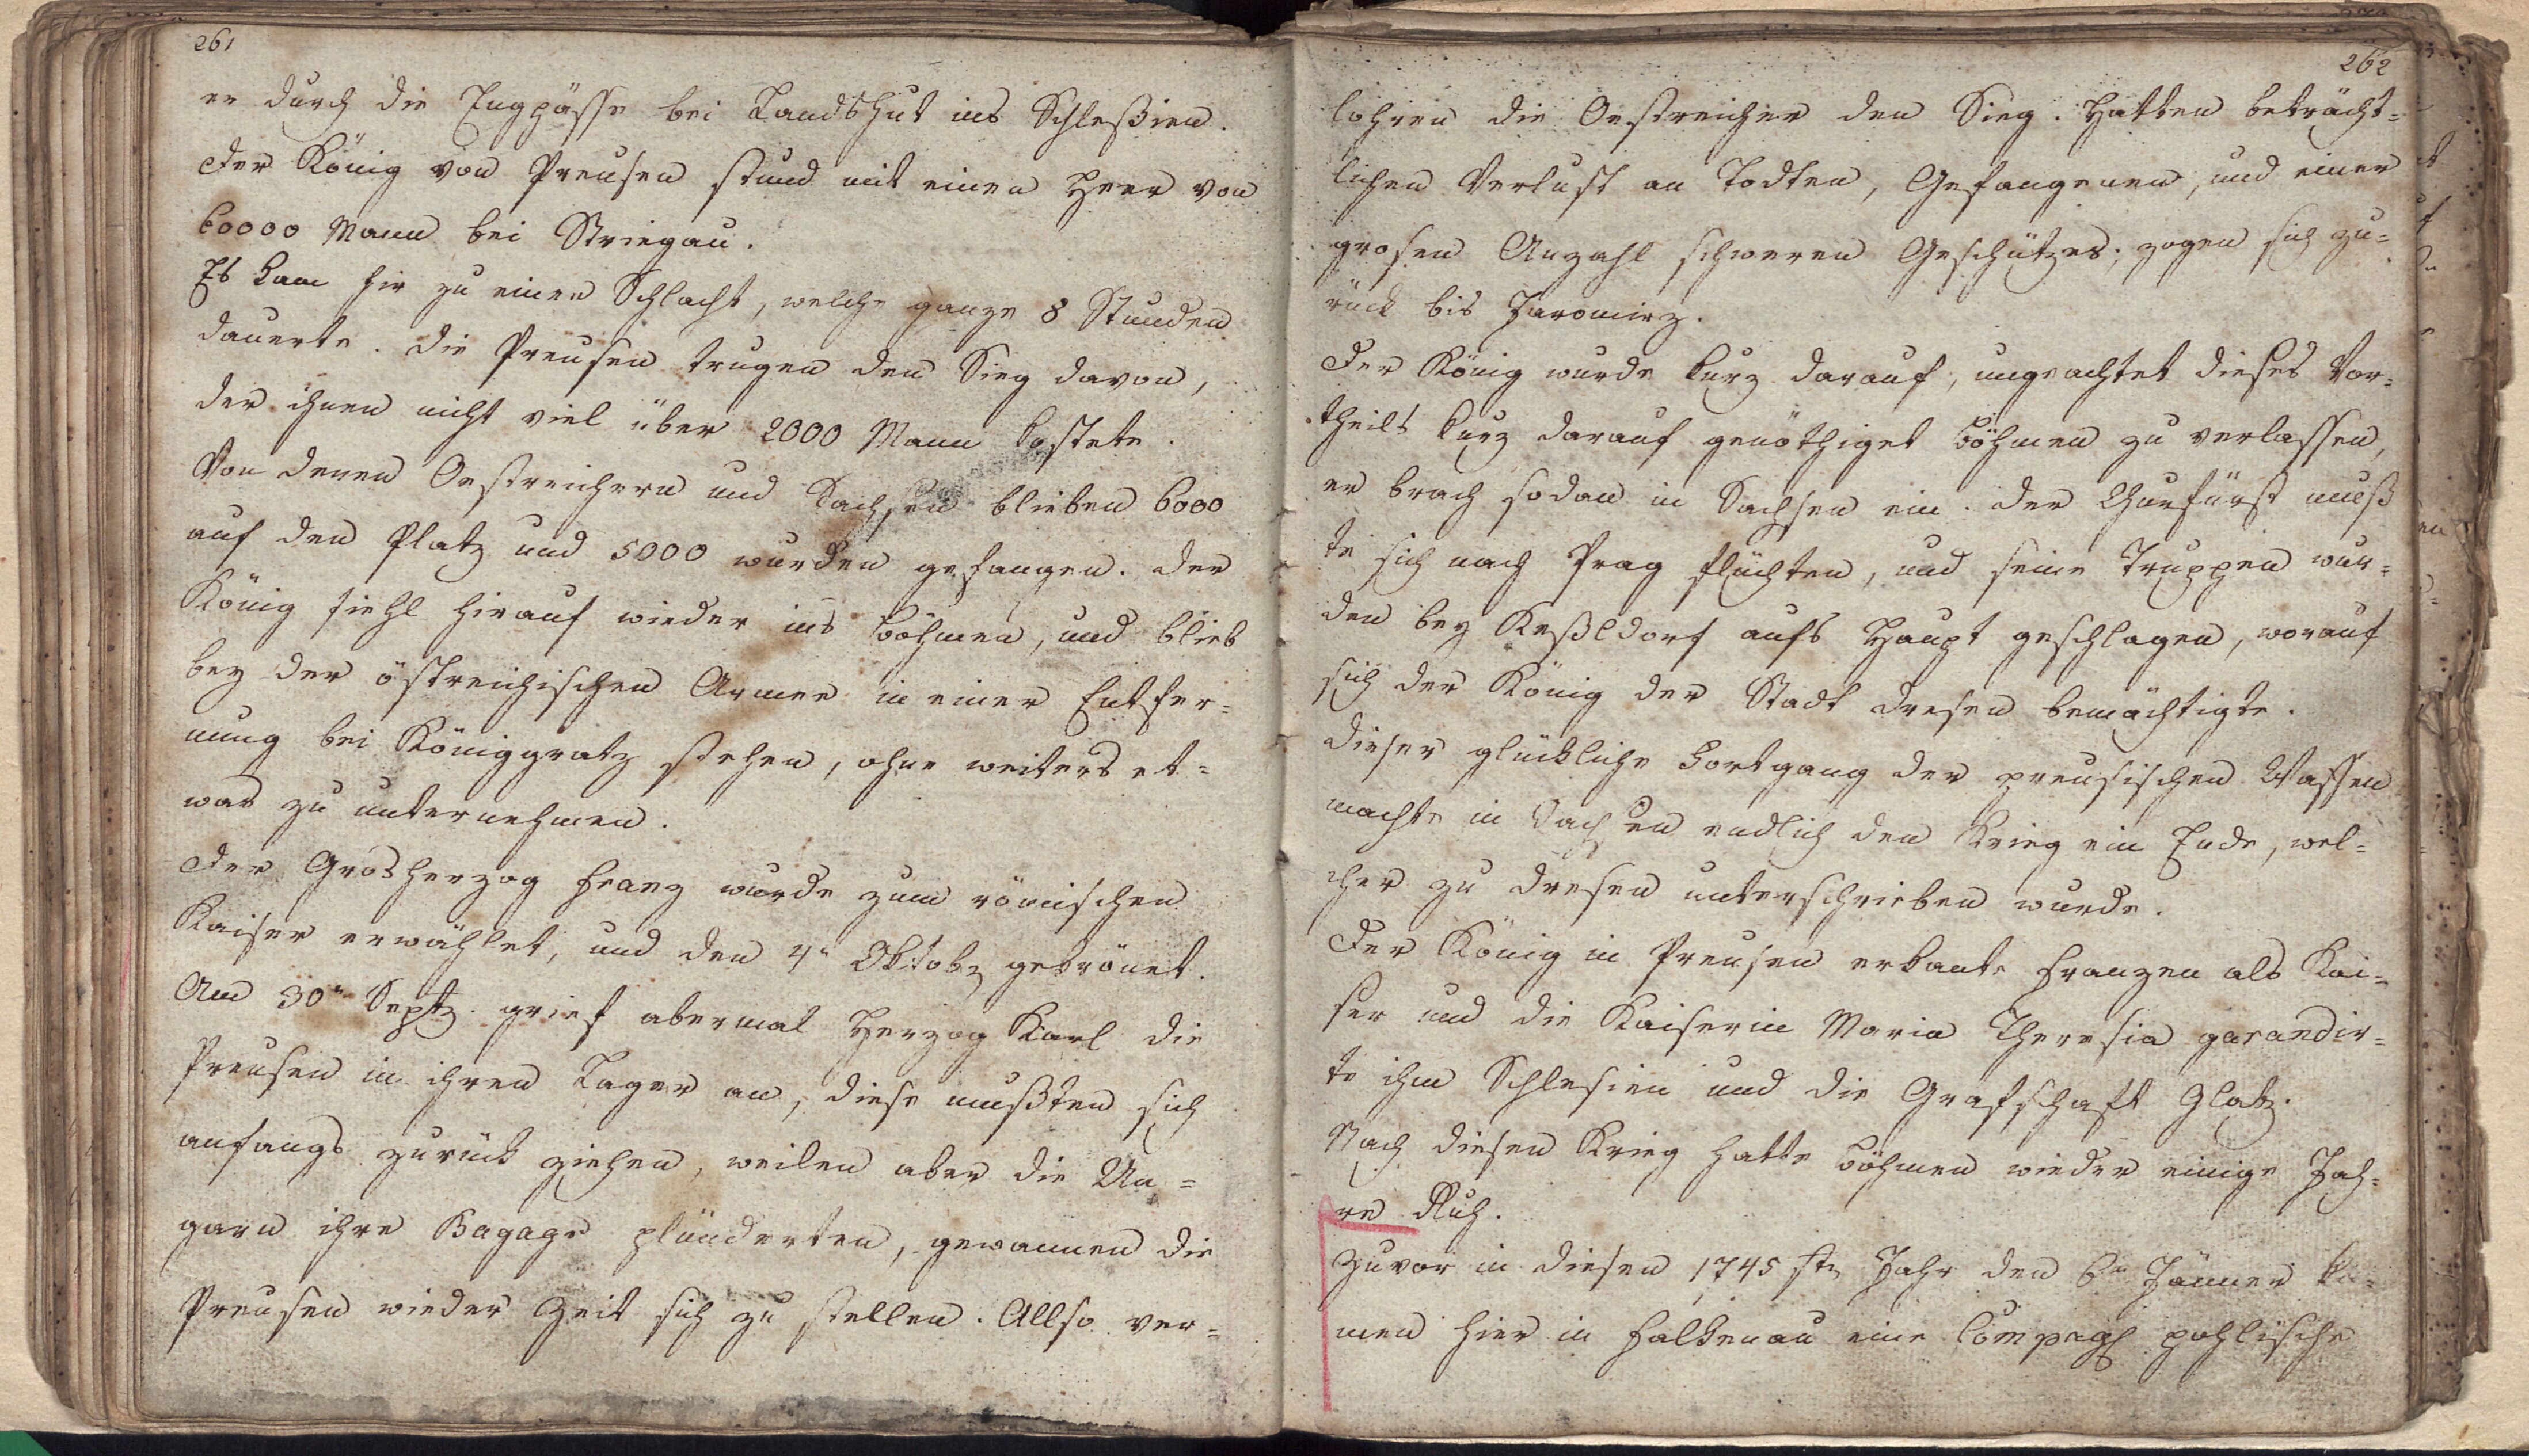 261
er durch die Engpässe bei Landshut ins Schleßien.
Der König von Preusen stund mit einen Heer von
60000 Mann bei Striegau.
Es kam hir zu einer Schlacht, welche ganze 8 Stunden
dauerte. Die Preusen trugen den Sieg davon,
der ihnen nicht viel über 2000 Mann kostete.
Von denen Oestreichern und Sachsen blieben 6000
auf den Platz und 5000 wurden gefangen. Der
König fiehl hirauf wieder ins Böhmen, und blieb
bey der östreichischen Armee in einer Entfer=
nung bei Königgratz stehen, ohne weiters et=
was zu unternehmen.
Der Grosherzog Franz wurde zum römischen
Kaiser erwählet, und den 4n Oktobr gekrönet.
Am 30n Septr. grief abermal Herzog Karl die
Preusen in ihren Lager an, diese mußten sich
anfangs zurück ziehen, weilen aber die Un=
garn ihre Bagage plünderten, gewannen die
Preusen wieder Zeit sich zu stellen. Allso ver=
262
lohren die Oestreicher den Sieg. Hatten beträcht=
lichen Verlust an Todten, Gefangenen, und einer
grosen Anzahl schweren Geschützes; zogen sich zu=
rück bis Jaromirz.
Der König wurde kurz darauf, ungeachtet dieses Vor=
theils kurz darauf genöthiget Böhmen zu verlassen,
er brach sodan in Sachsen ein. Der Churfürst muß
te sich nach Prag flüchten, und seine Truppen wur=
den bey Keßeldorf aufs Haupt geschlagen, worauf
sich der König der Stadt Dresen bemächtigte.
Dieser glückliche Fortgang der preusischen Waffen
machte in Sachsen endlich den Krieg ein Ende, wel=
cher zu Dresen unterschrieben wurde.
Der König in Preusen erkante Franzen als Kai=
ser und die Kaiserin Maria Theresia garandir=
te ihm Schlesien und die Grafschaft Glatz.
Nach diesen Krieg hatte Böhmen wieder einige Jah=
re Ruh.
Zuvor in diesen 1745ste Jahr den 6n Jänner ka=
men hier in Falkenau eine Compagh pohlische